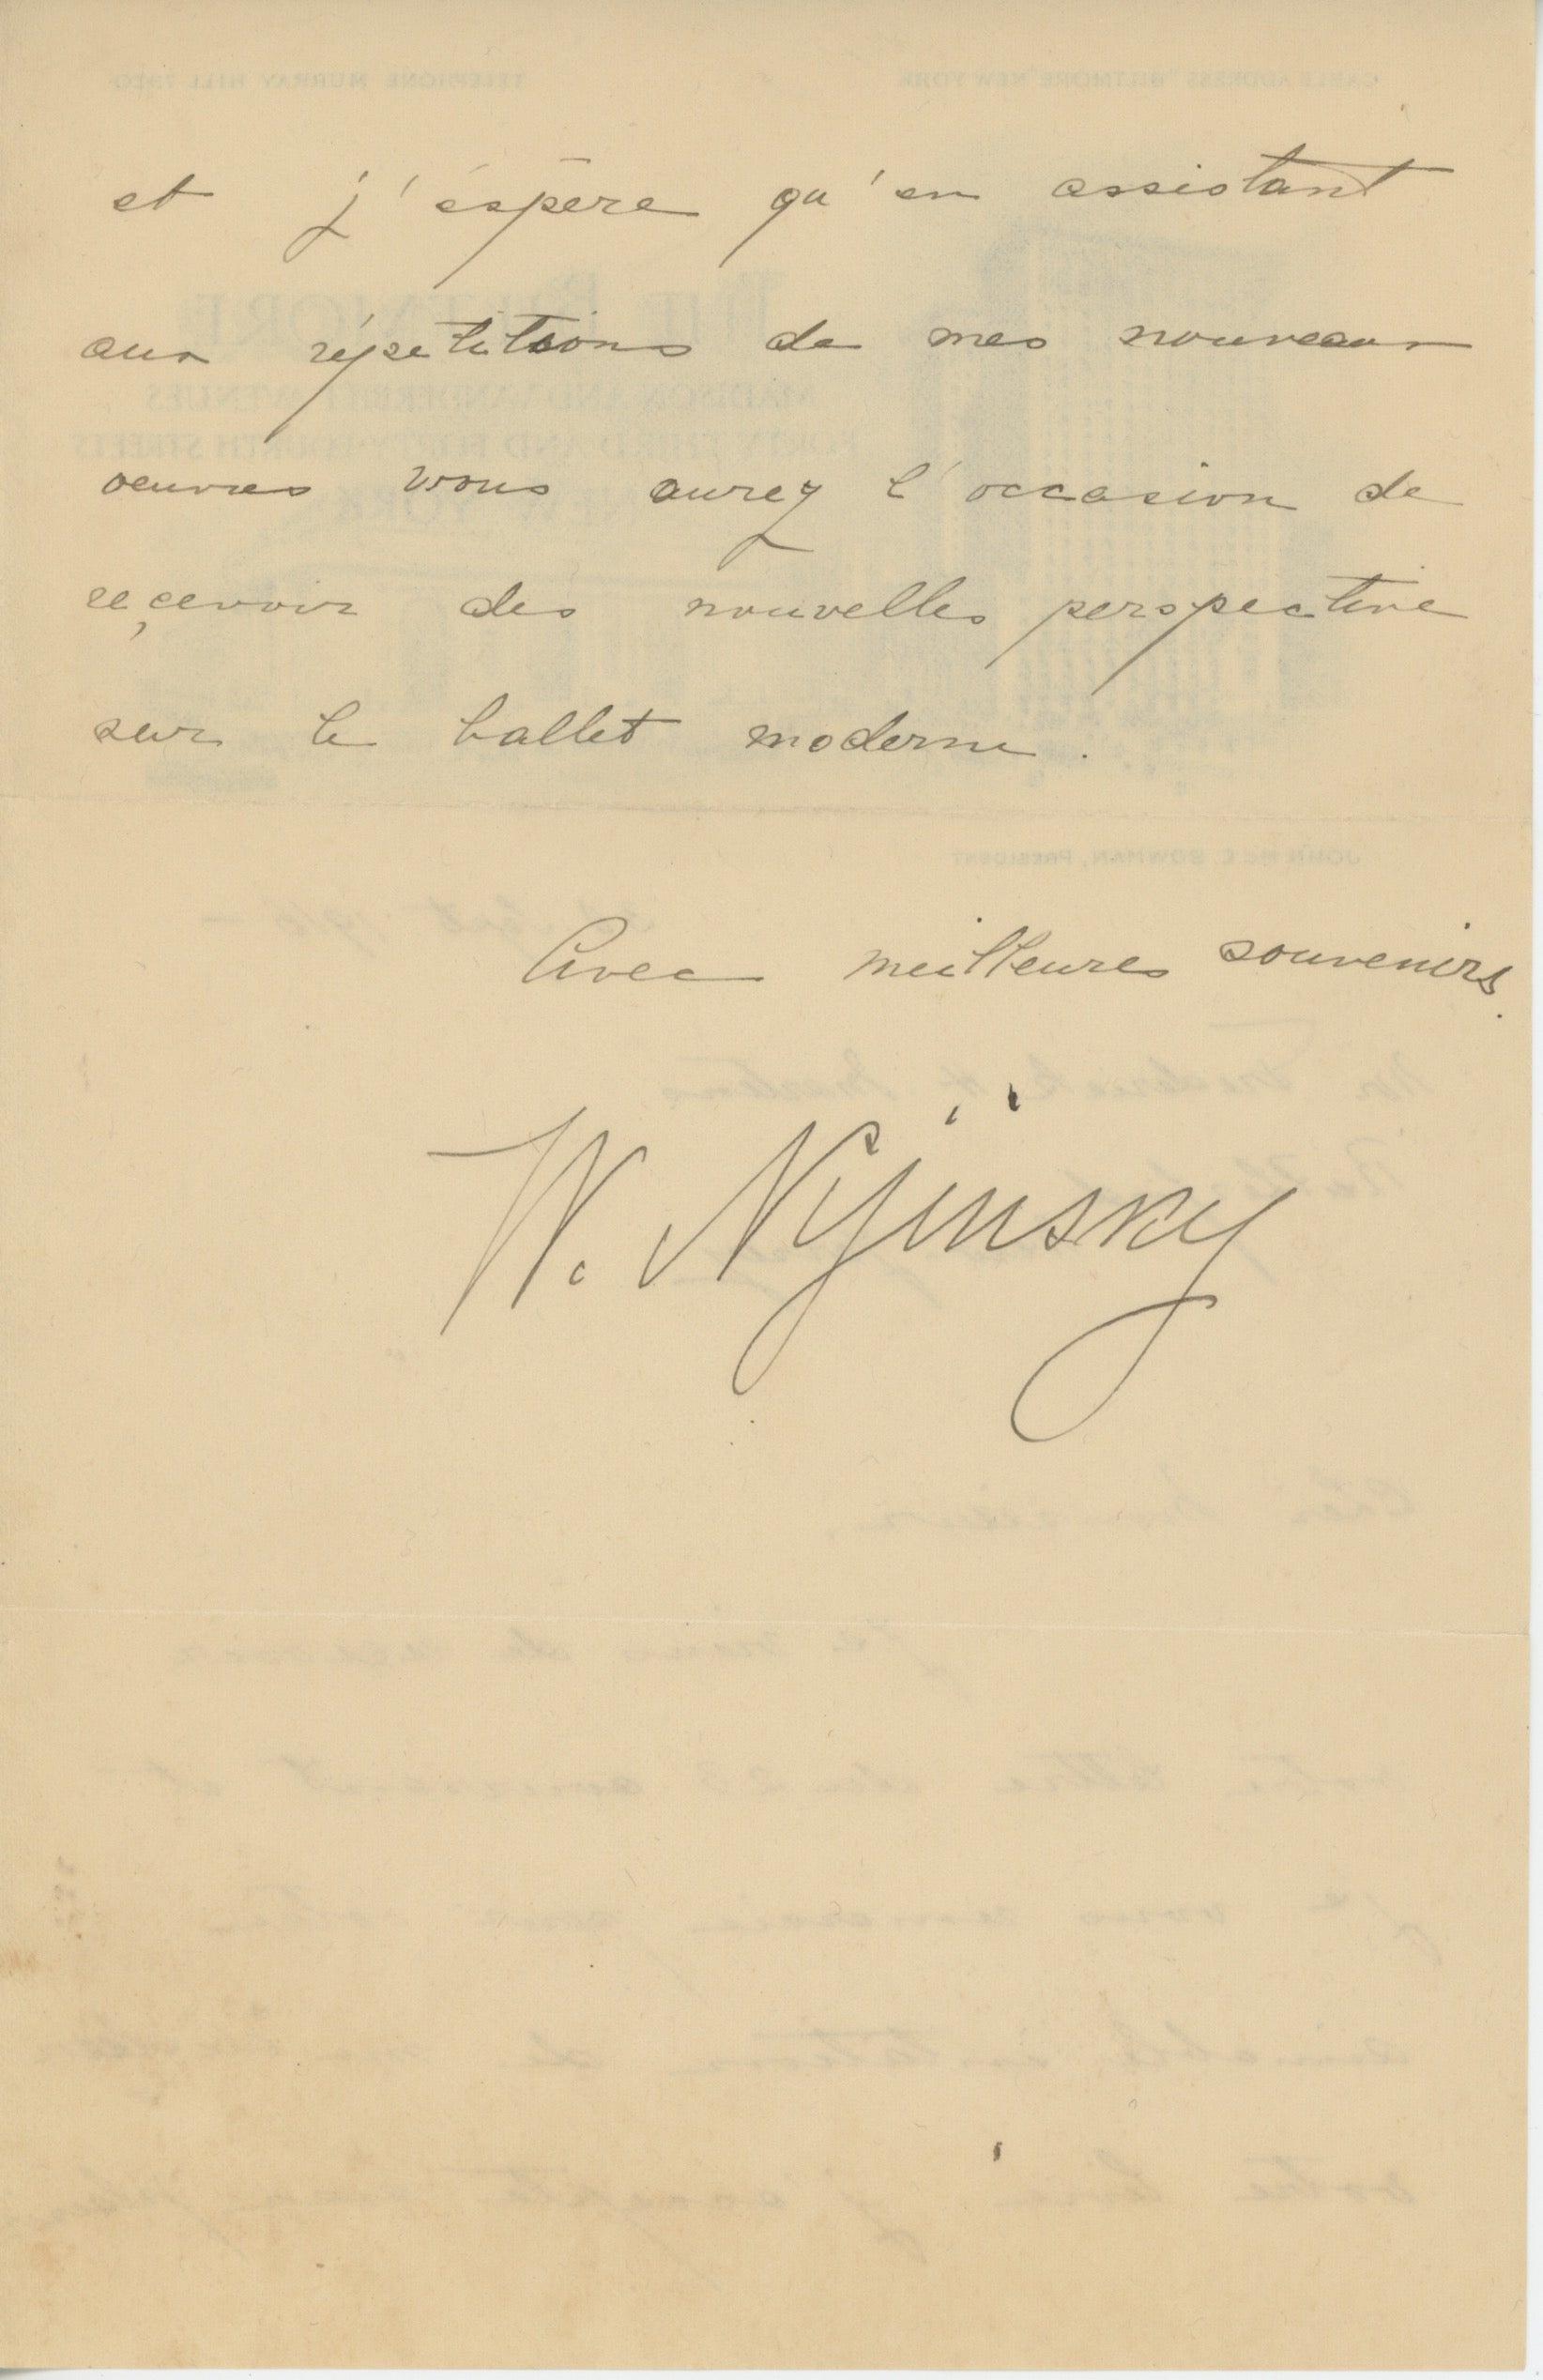 et j'éspère qu'en assistant
aux répetitions de mes nouveaux
oeuvres vous aurez l'occasion de
reçevoir des nouvelles perspective
sur le ballet moderne.
Avec meilleures souvenirs.
W. Nijinsky